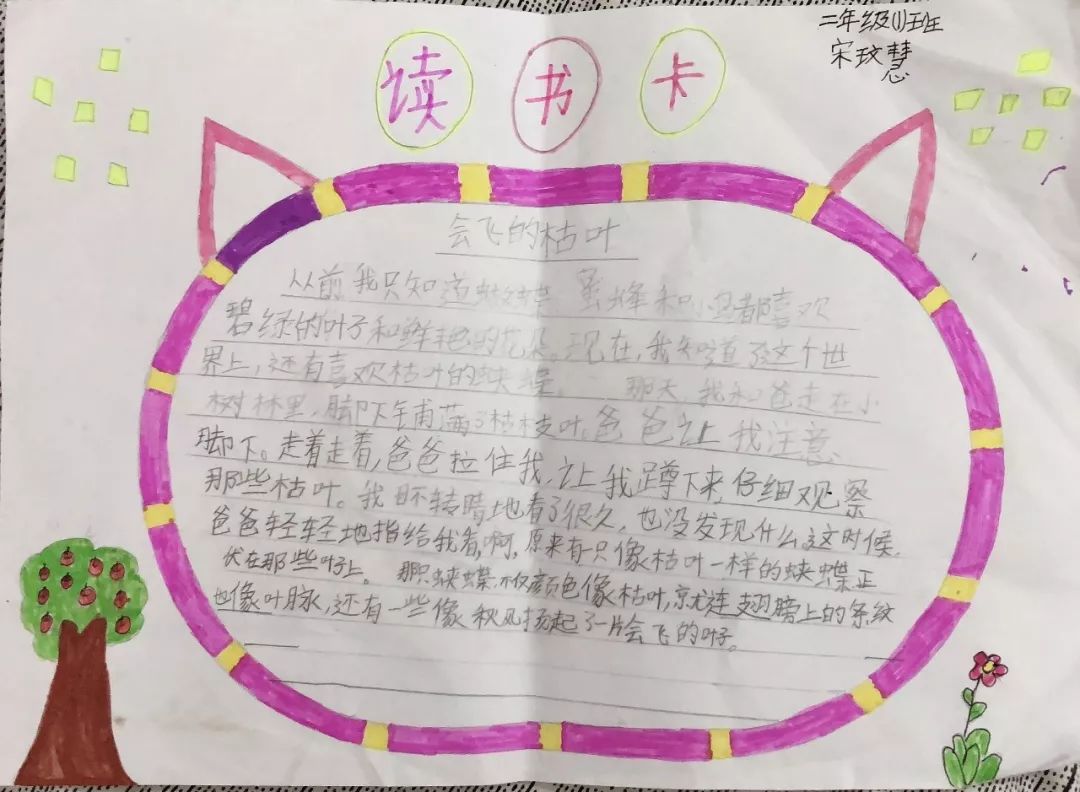 二年级(1)班
宋玟慧
读书卡
会飞的枯叶
从前我只知道蝴蝶 蜜蜂和小鸟都喜欢
碧绿的叶子和鲜艳的花朵。现在,我知道了这个世
界上,还有喜欢枯叶的蛱蝶。 那天,我和爸走在小
树林里,脚下铺满了枯枝叶,爸爸让我注意
脚下。走着走着,爸爸拉住我,让我蹲下来,仔细观察
那些枯叶。我目不转睛地看了很久,也没发现什么这时候,
爸爸轻轻地指给我看,啊,原来有只像枯叶一样的蛱蝶正
伏在那些叶子上。 那只蛱蝶,不仅颜色像枯叶,就连翅膀上的条纹
也像叶脉,还有一些像秋风扬起了一片会飞的叶子。